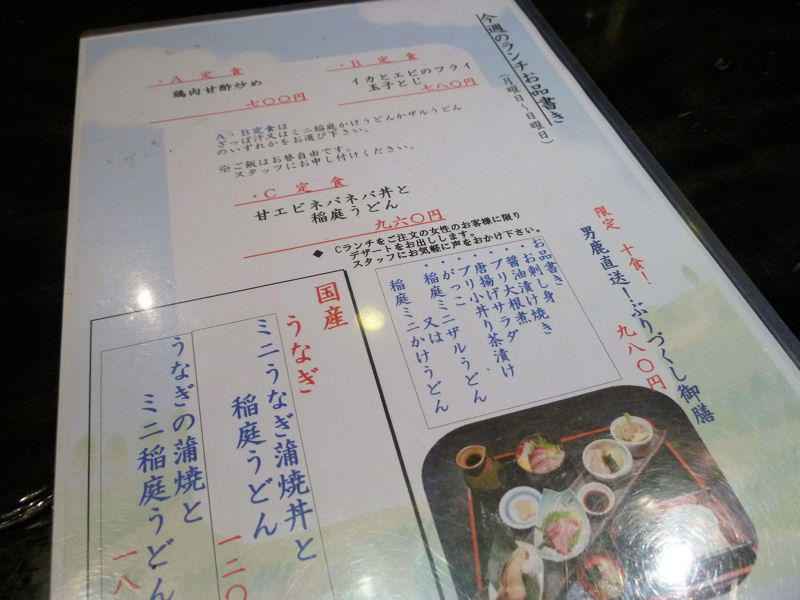 今週のランチお品書き
(月曜日〜日曜日)
・A 定食
鶏肉甘酢炒め
七〇〇円
・B 定食
イカとエビのフライ
玉子とじ
七八〇円
A・B定食は
ざっぱ汁又はミニ稲庭かけうどんかザルうどん
のいずれかをお選び下さい。
※ご飯はお替自由です。
スタッフにお申し付けください。
・C 定食
甘エビネバネバ丼と
稲庭うどん
九六〇円
◆Cランチをご注文の女性のお客様に限り
デザートをお出しします。
スタッフにお気軽に声をおかけ下さい。
限定 十食!
男鹿直送!ぶりづくし御膳
九八〇円
お品書き
・お刺し身
・醤油漬け焼き
・ブリ大根煮
・唐揚げサラダ
・ブリ小丼り茶漬け
・がっこ
稲庭ミニザルうどん
又は
稲庭ミニかけうどん
国産
うなぎ
ミニうなぎ蒲焼丼と
稲庭うどん
一二〇
うなぎの蒲焼と
ミニ稲庭うどん
一八